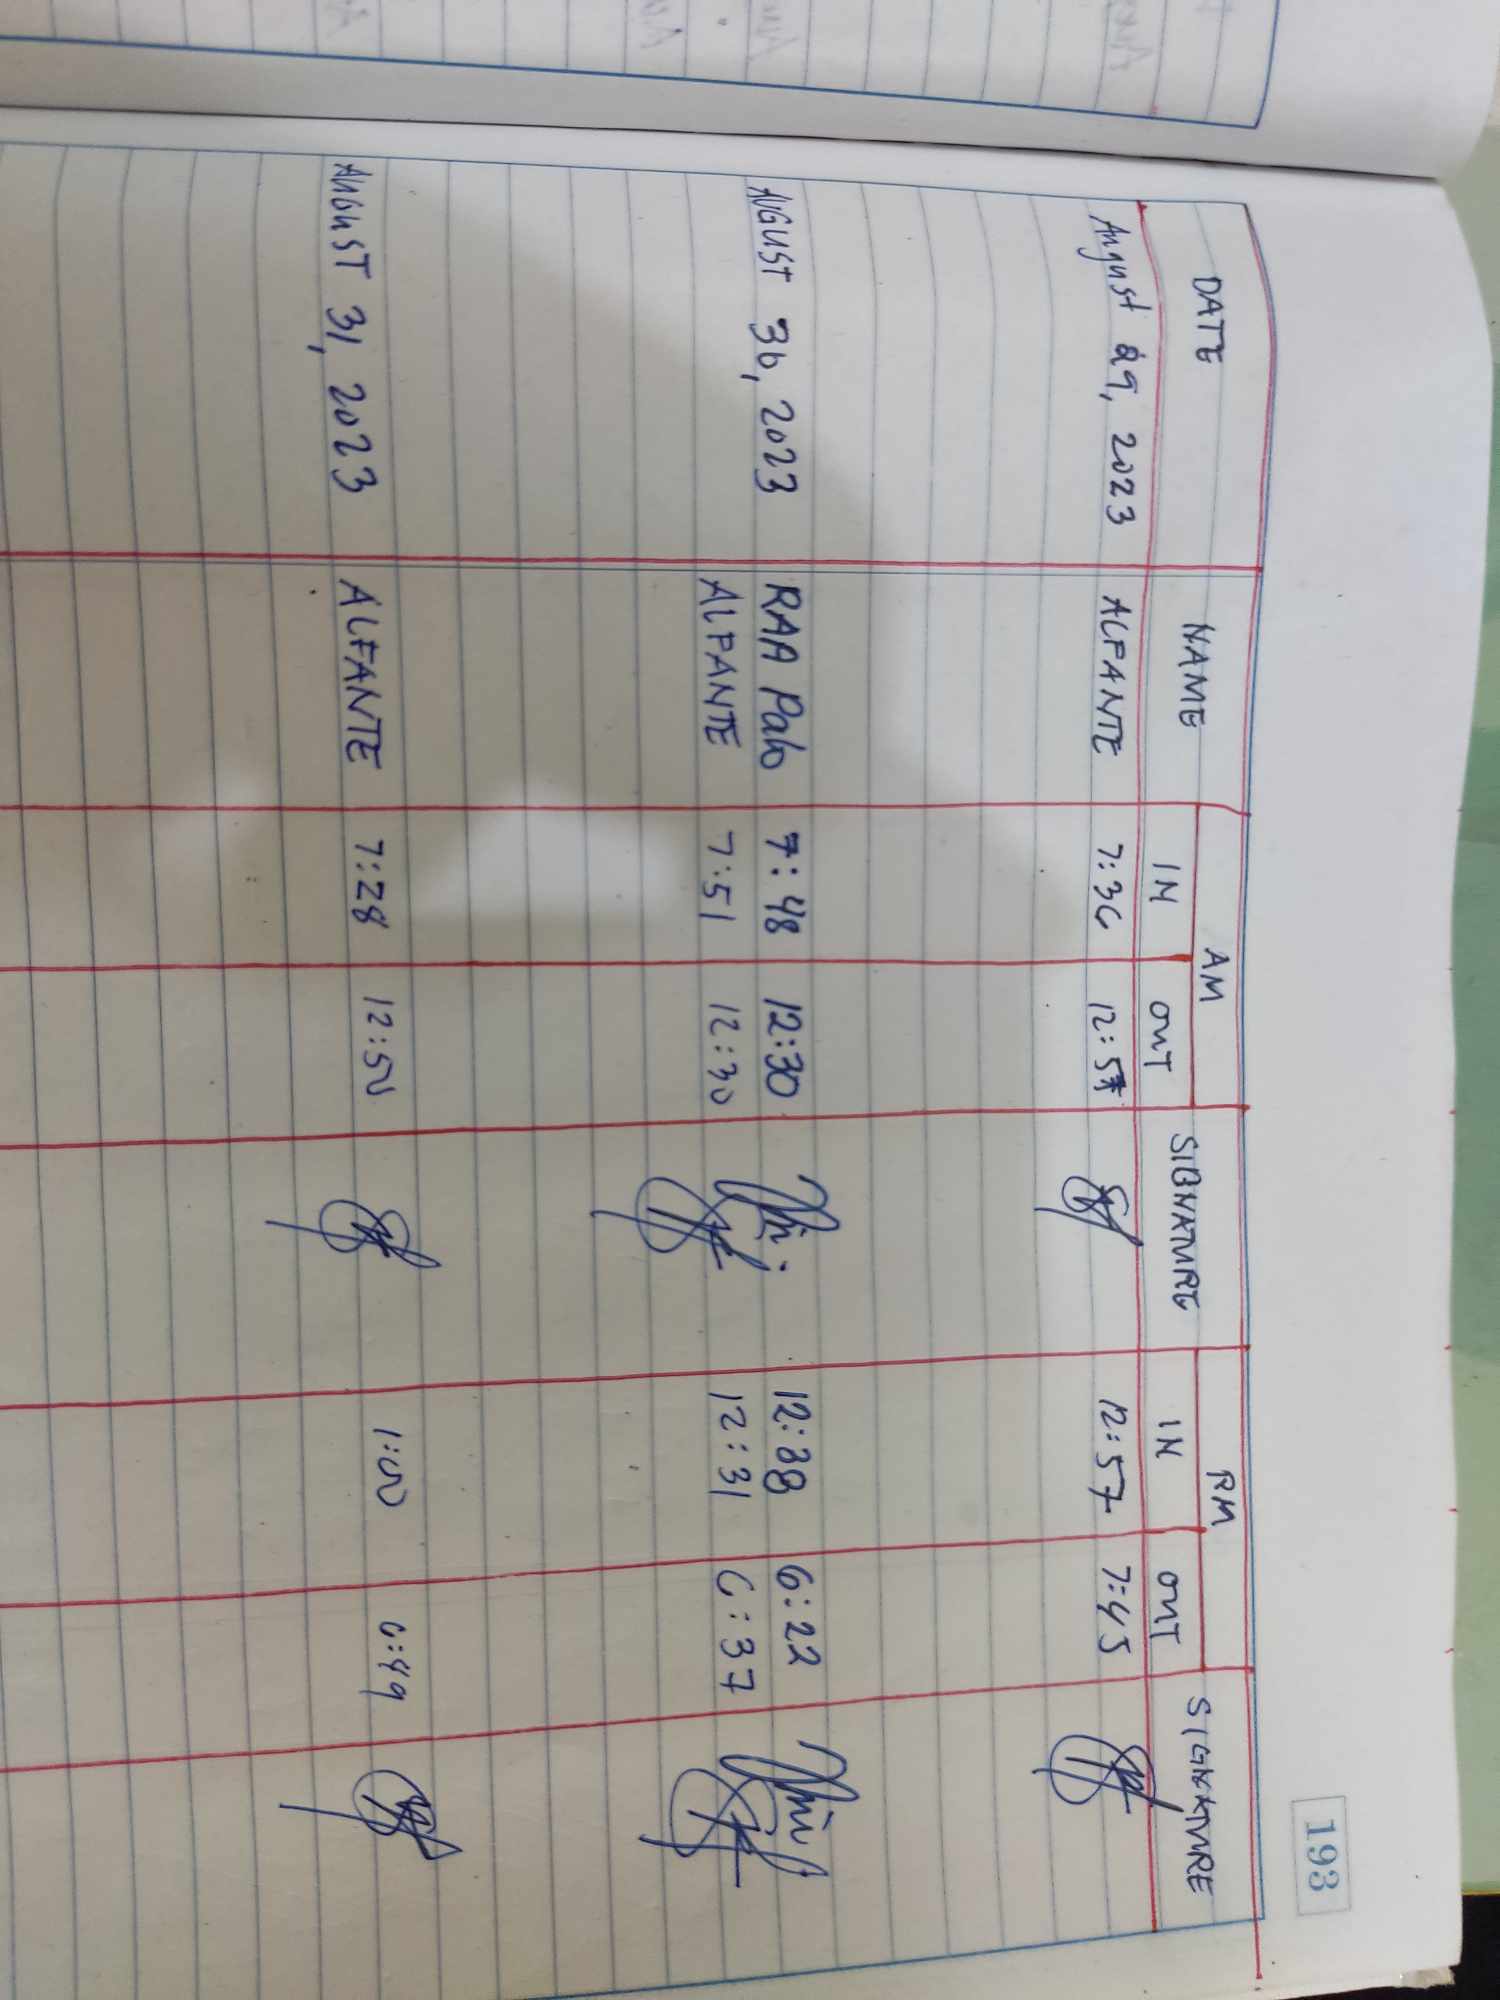 193
DATE NAME AM SIGNATURE PM SIGNATURE
IN OUT IN OUT
August 29, 2023 ALFANTE 7:36 12:57 12:57 7:45
AUGUST 30, 2023 RAA Palo 7:48 12:30 12:38 6:22
ALFANTE 7:51 12:30 12:31 6:37
AUGUST 31, 2023 ALFANTE 7:28 12:50 1:00 6:49